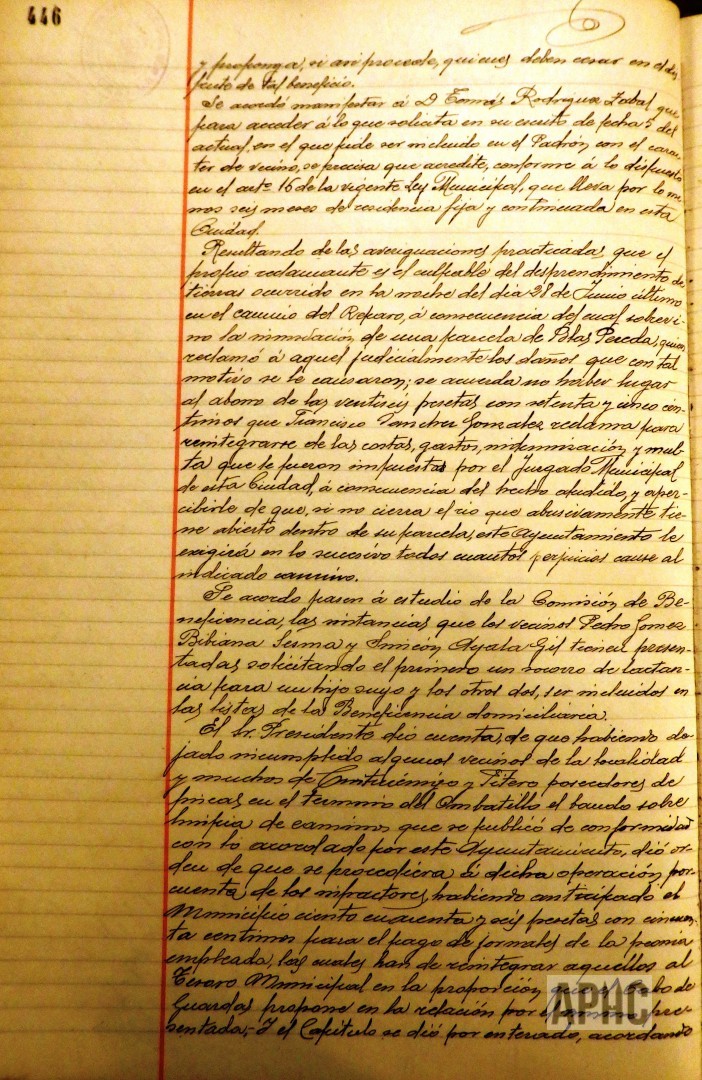 446
y proponga, si asi procede, quienes deben cesar en el dis-
frute de tal beneficio.
Se acordó manifestar á D. Tomás Rodriguez Zabal que
para acceder á lo que solicita en su escrito de fecha 5 del
actual, en el que pide ser incluido en el Padrón con el carac-
ter de vecino, se precisa que acredite, conforme á lo dispuesto
en el artº 16 de la vigente Ley Municipal, que lleva por lo me-
nos seis meses de residencia fija y continuada en esta
Ciudad.
Resultando de las averiguaciones practicadas, que el
propio reclamante es el culpable del desprendimiento de
tierras ocurrido en la noche del dia 28 de Junio último
en el camino del Reparo, á consecuencia del cual sobrevi-
no la inundación de una parcela de Blas Pereda, quien
reclamó á aquel judicialmente los daños que con tal
motivo se le causaron; se acuerda no haber lugar
al abono de las ventiseis pesetas con setenta y cinco cén-
timos que Francisco Sanchez Gonzalez reclama para
reintegrarse de las costas, gastos, indemnización y mul-
ta que le fueron impuestas por el Juzgado Municipal
de esta Ciudad, á consecuencia del hecho aludido, y aper-
cibirle de que, si no cierra el rio que abusivamente tie-
ne abierto dentro de su parcela, este Ayuntamiento le
exigirá en lo sucesivo todos cuantos perjuicios cause al
indicado camino.
Se acordo pasen á estudio de la Comisión de Be-
neficencia, las instancias que los vecinos Pedro Gomez
Bibiana Sesma y Simeón Ayala Gil tienen presen-
tadas solicitando el primero un socorro de lactan-
cia para un hijo suyo y los otros dos, ser incluidos en
las listas de la Beneficencia domiciliaria.
El Sr. Presidente dió cuenta, de que habiendo de-
jado incumplido algunos vecinos de la localidad
y muchos de Cintruénigo y Fitero poseedores de
fincas en el termino del Ombatillo el bando sobre
limpia de caminos que se publicó de conformidad
con lo acordado por este Ayuntamiento, dió or-
den de que se procediera á dicha operación por
cuenta de los infractores, habiendo anticipado el
Municipio ciento cuarenta y seis pesetas con cincuen-
ta centimos para el pago de jornales de la peonía
empleada, las cuales han de reintegrar aquellos al
Tesoro Municipal en la proporción que el Cabo de
Guardas propone en la relación por el mismo pre-
sentada; - Y el Capítulo se dió por enterado, acordando
APHC